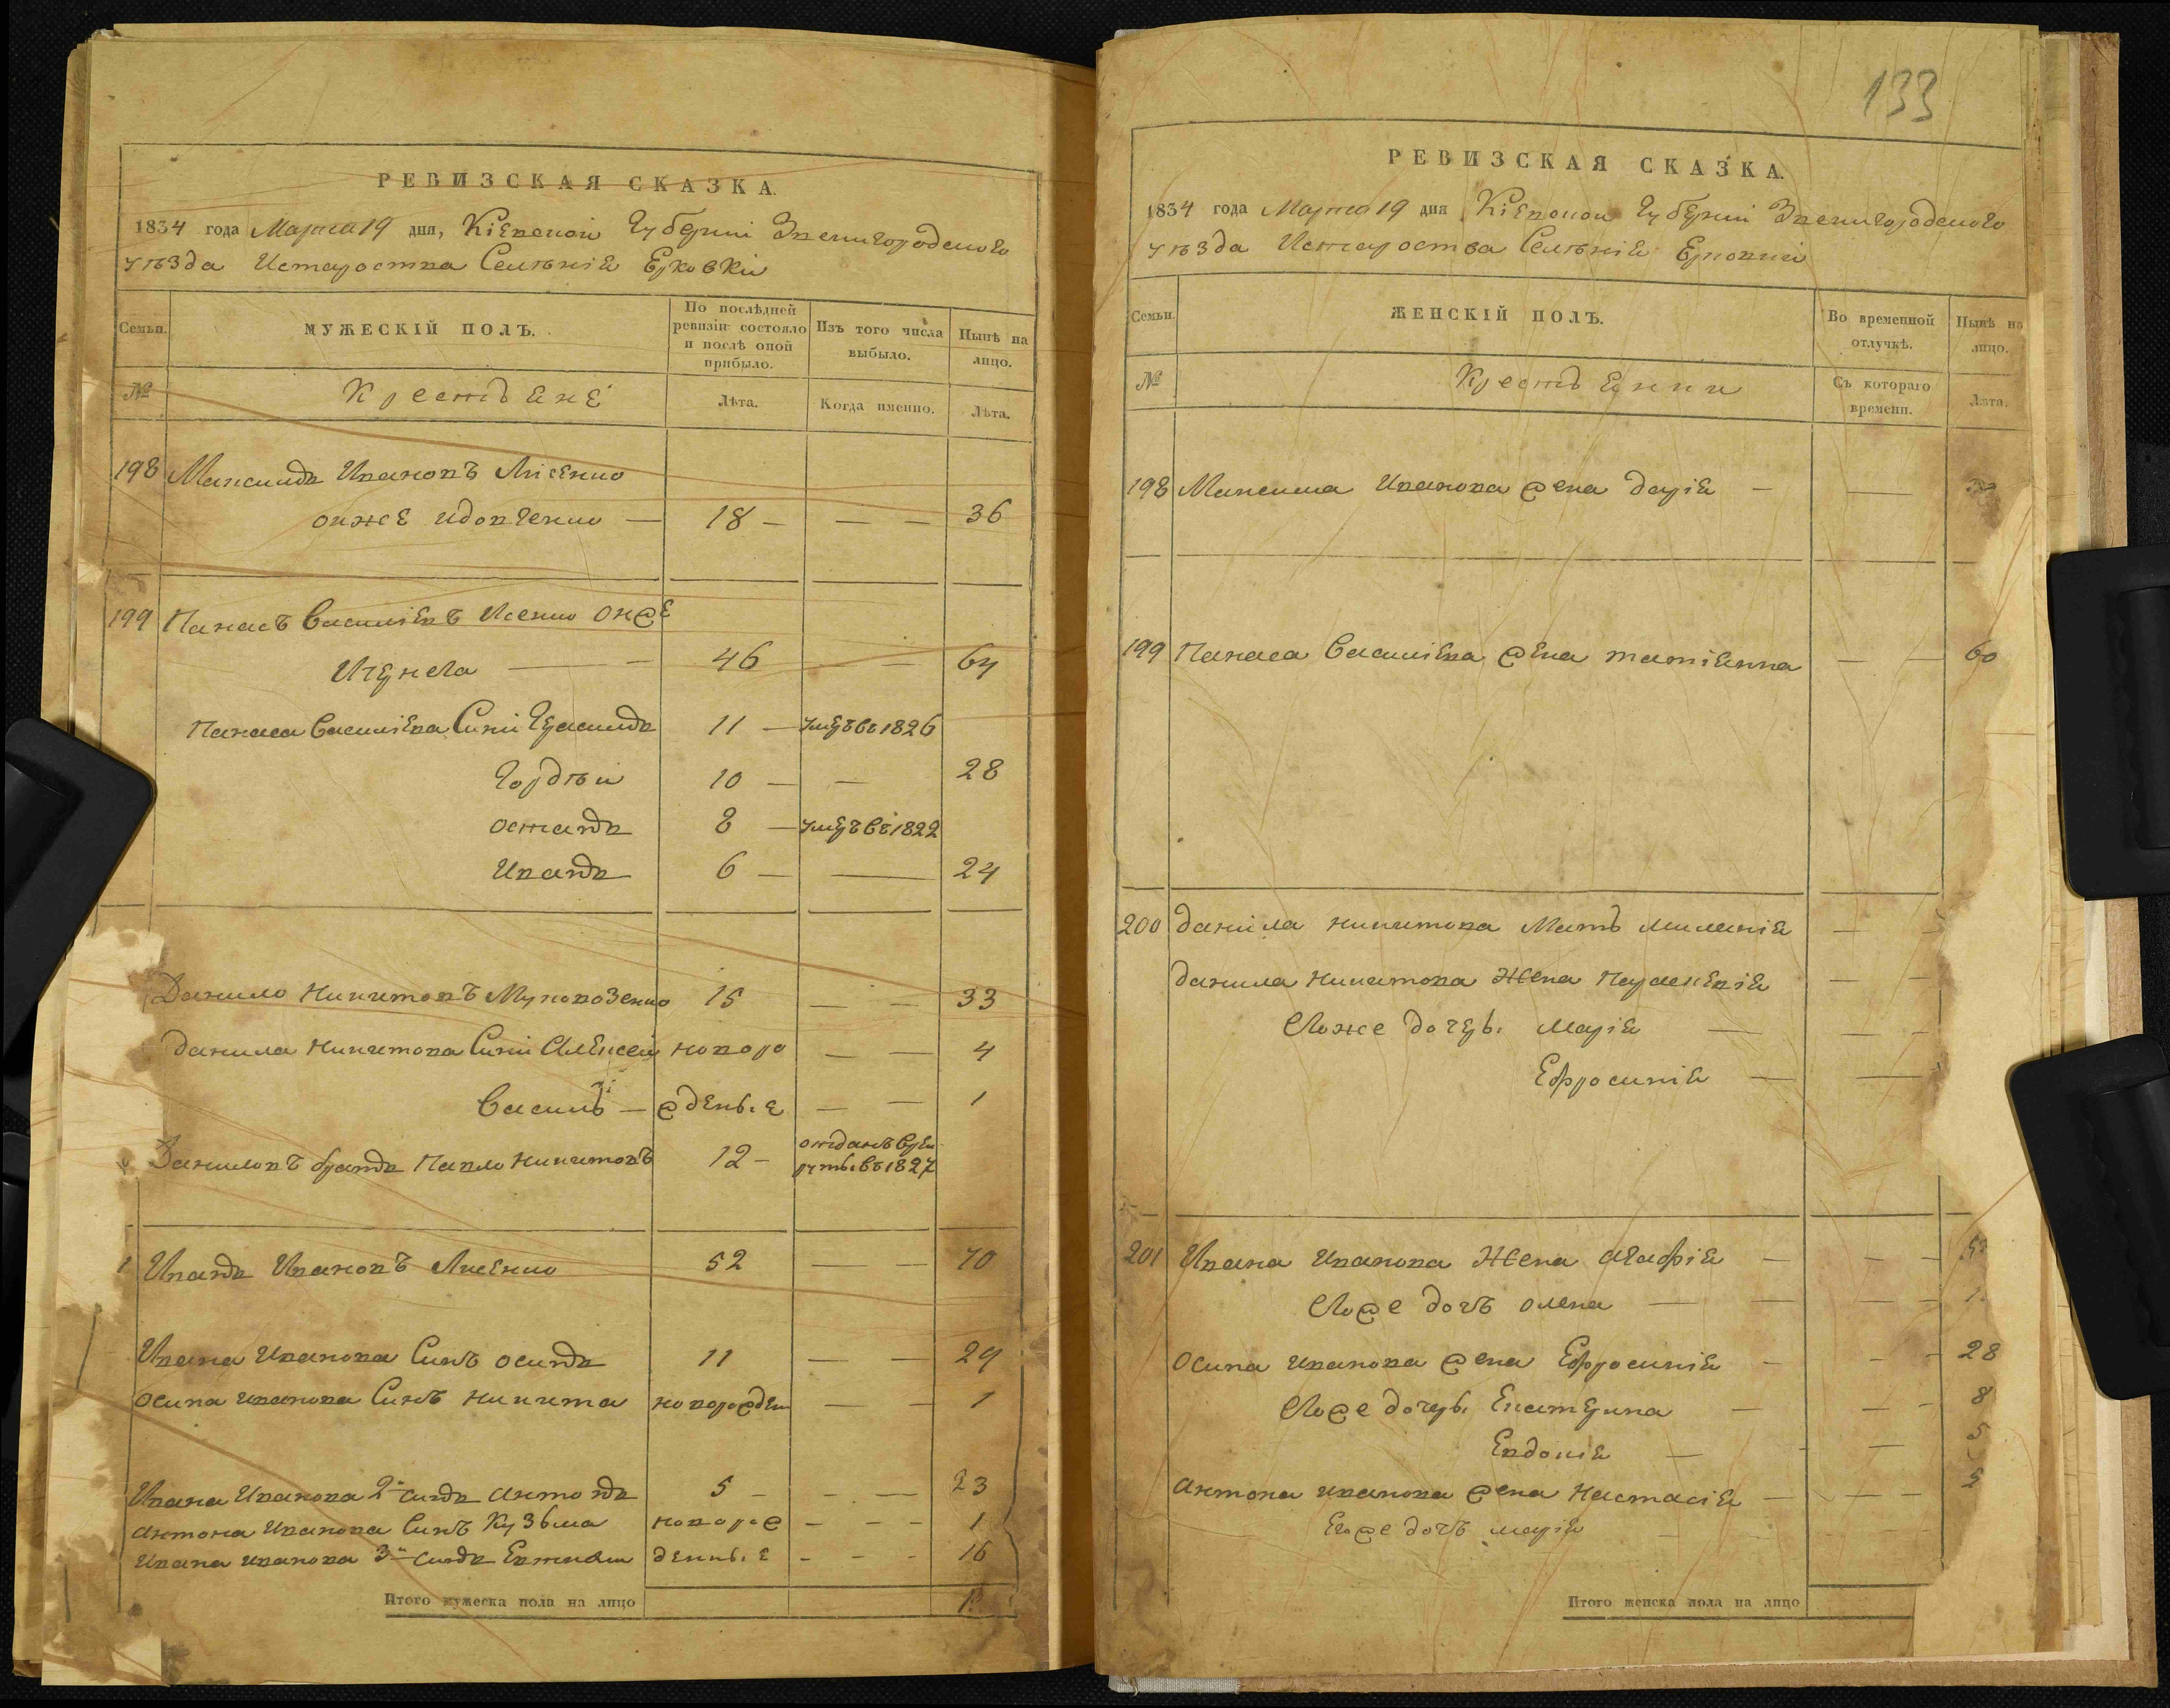 РЕВИЗСКАЯ СКАЗКА.
1834 года Марта 19 дня, Кіевской Губерніи Звенигородского
уѣзда Истароства Селѣнія Ерковки
Семьи. МУЖЕСКІЙ ПОЛЪ. По послѣдней ревизіи состояло и послѣ оной прибыло. Изъ того числа выбыло. Нынѣ на лицо.
№ Крестьяне Лѣта. Когда именно. Лѣта.
198 Максимъ Ивановъ Лисенко
онже Вдовченко — 18 — — — 36
199 Панасъ Василіевъ онже
— 46 — 64
Панаса Василіева Сини Герасимъ 11 — умеръ въ 1826
Гордѣй 10 — — 28
Остапъ 8 — умеръ въ 1822
Иванъ 6 — — 24
Данило Никитовъ 15 — — 33
Данила Никитова Сини Алексей новоро — — 4
Василь — жденые — — 1
Даниловъ братъ Павло Никитовъ 12 — отданъ врек
руты въ 1827
1 Иванъ Ивановъ Лисенко 52 — — 70
Ивана Иванова Синъ Осипъ 11 — — 29
Осипа Иванова Синъ Никита новорожден — — 1
Ивана Иванова 2й синъ Антонъ 5 — — — 23
Антона Иванова Синъ Кузьма новорож — — — 1
Ивана Иванова 3й синъ денные — — — 16
Итого мужеска пола на лицо
133
РЕВИЗСКАЯ СКАЗКА.
1834 года Марта 19 дня Кіевской Губерніи Звенигородского
уѣзда Истароства Селѣнія Ерковки
Семьи. ЖЕНСКІЙ ПОЛЪ. Во временной отлучкѣ. Нынѣ на лицо.
№ Крестьянки Съ котораго времени. Лѣта.
198 Максима Иванова жена Дарія — —
199 Панаса Василіева жена Татіанна — — 60
200 Данила Никитова Мать Миланія — —
Данила Никитова Жена Параскевія — —
Егоже дочеры Марія — — —
Ефросинія — —
201 Ивана Иванова Жена Агафія — — —
Егоже дочь Олена — — —
Осипа Иванова жена Ефросинія — — — 28
Егоже дочеры Екатерина — — — 8
Евдокія — — 5
Антона Иванова жена Настасія — — —
Егоже дочь Марія
Итого женска пола на лицо